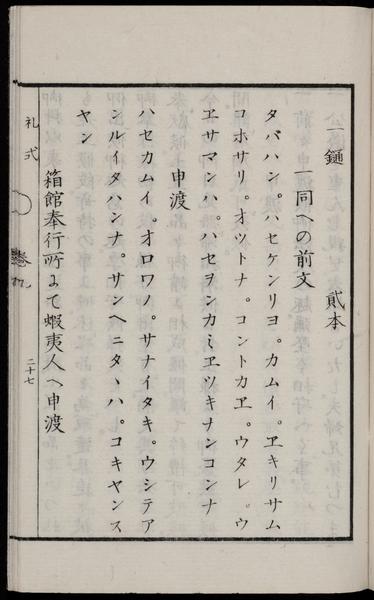 一鎚　　　　貮本
一同への前文
タバハン。ハセケンリヨ。カムイ。ヱキリサム
コホサリ。オツトナ。コントカヱ。ウタレ。ウ
ヱサマンハ。ハセヲンカミヱツキナンコンナ
申渡
ハセカムイ。オロワノ。サナイタキ。ウシテア
ンルイタハンナ。サンヘニタヽハ。コキヤンス
ヤン
箱館奉行所よて蝦夷人へ申渡
礼式
巻九
二十七